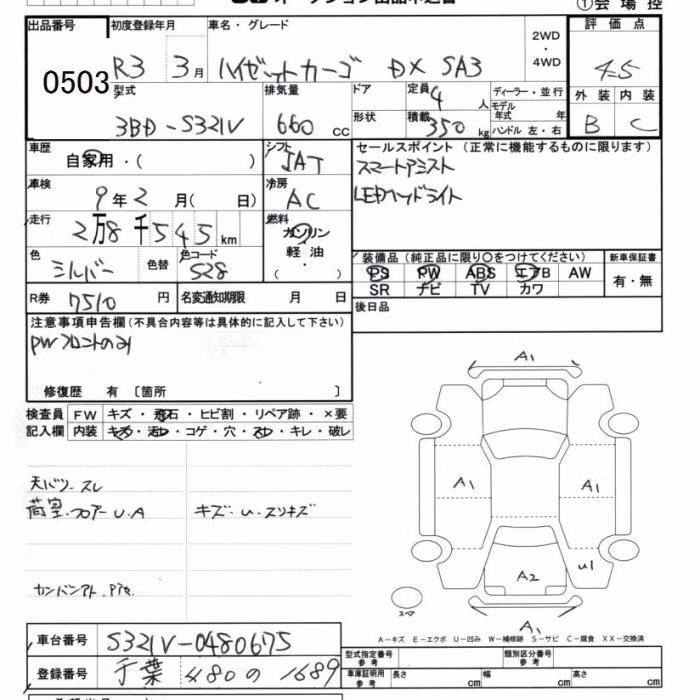 ①会場控
出品番号
初度登録年月
車名・グレード
評価点
0503
R3 3月
ハイゼットカーゴ DX SA3
2WD
・
4WD
4.5
型式
3BD-S321V
排気量
660 cc
ドア
定員 4 人
ディーラー・並行
モデル
年式 年
外装 内装
形状
積載 350 kg
ハンドル 左・右
B C
車歴
自家用・( )
シフト
IAT
セールスポイント (正常に機能するものに限ります)
スマートアシスト
LEDヘッドライト
車検
9年2月( 日)
冷房
AC
走行
2万8千545km
燃料
ガソリン
軽油
( )
色
シルバー
色替
色コード
S28
装備品 (純正品に限り〇をつけてください)
新車保証書
PS PW ABS エアB AW
有・無
SR ナビ TV カワ
R券 7510 円
名変通知期限 月 日
後日品
注意事項申告欄(不具合内容等は具体的に記入して下さい)
PWフロントのみ
修復歴 有 〔箇所 〕
検査員 FW キズ・飛石・ヒビ割・リペア跡・×要
記入欄 内装 キズ・汚レ・コゲ・穴・スレ・キレ・破レ
天バリ.スレ
荷室.フロアーU.A
キズ.U.スリキズ
カンバンアト.Pアセ
A1
A1
A1
A2
U1
A1
スペア
A-キズ E-エクボ U-凹み W-補修跡 S-サビ C-腐食 XX-交換済
車台番号 S321V-0480675
登録番号 千葉 480 の 1689
型式指定番号
参考
類別区分番号
参考
車庫証明用
参考
長さ cm
幅 cm
高さ cm